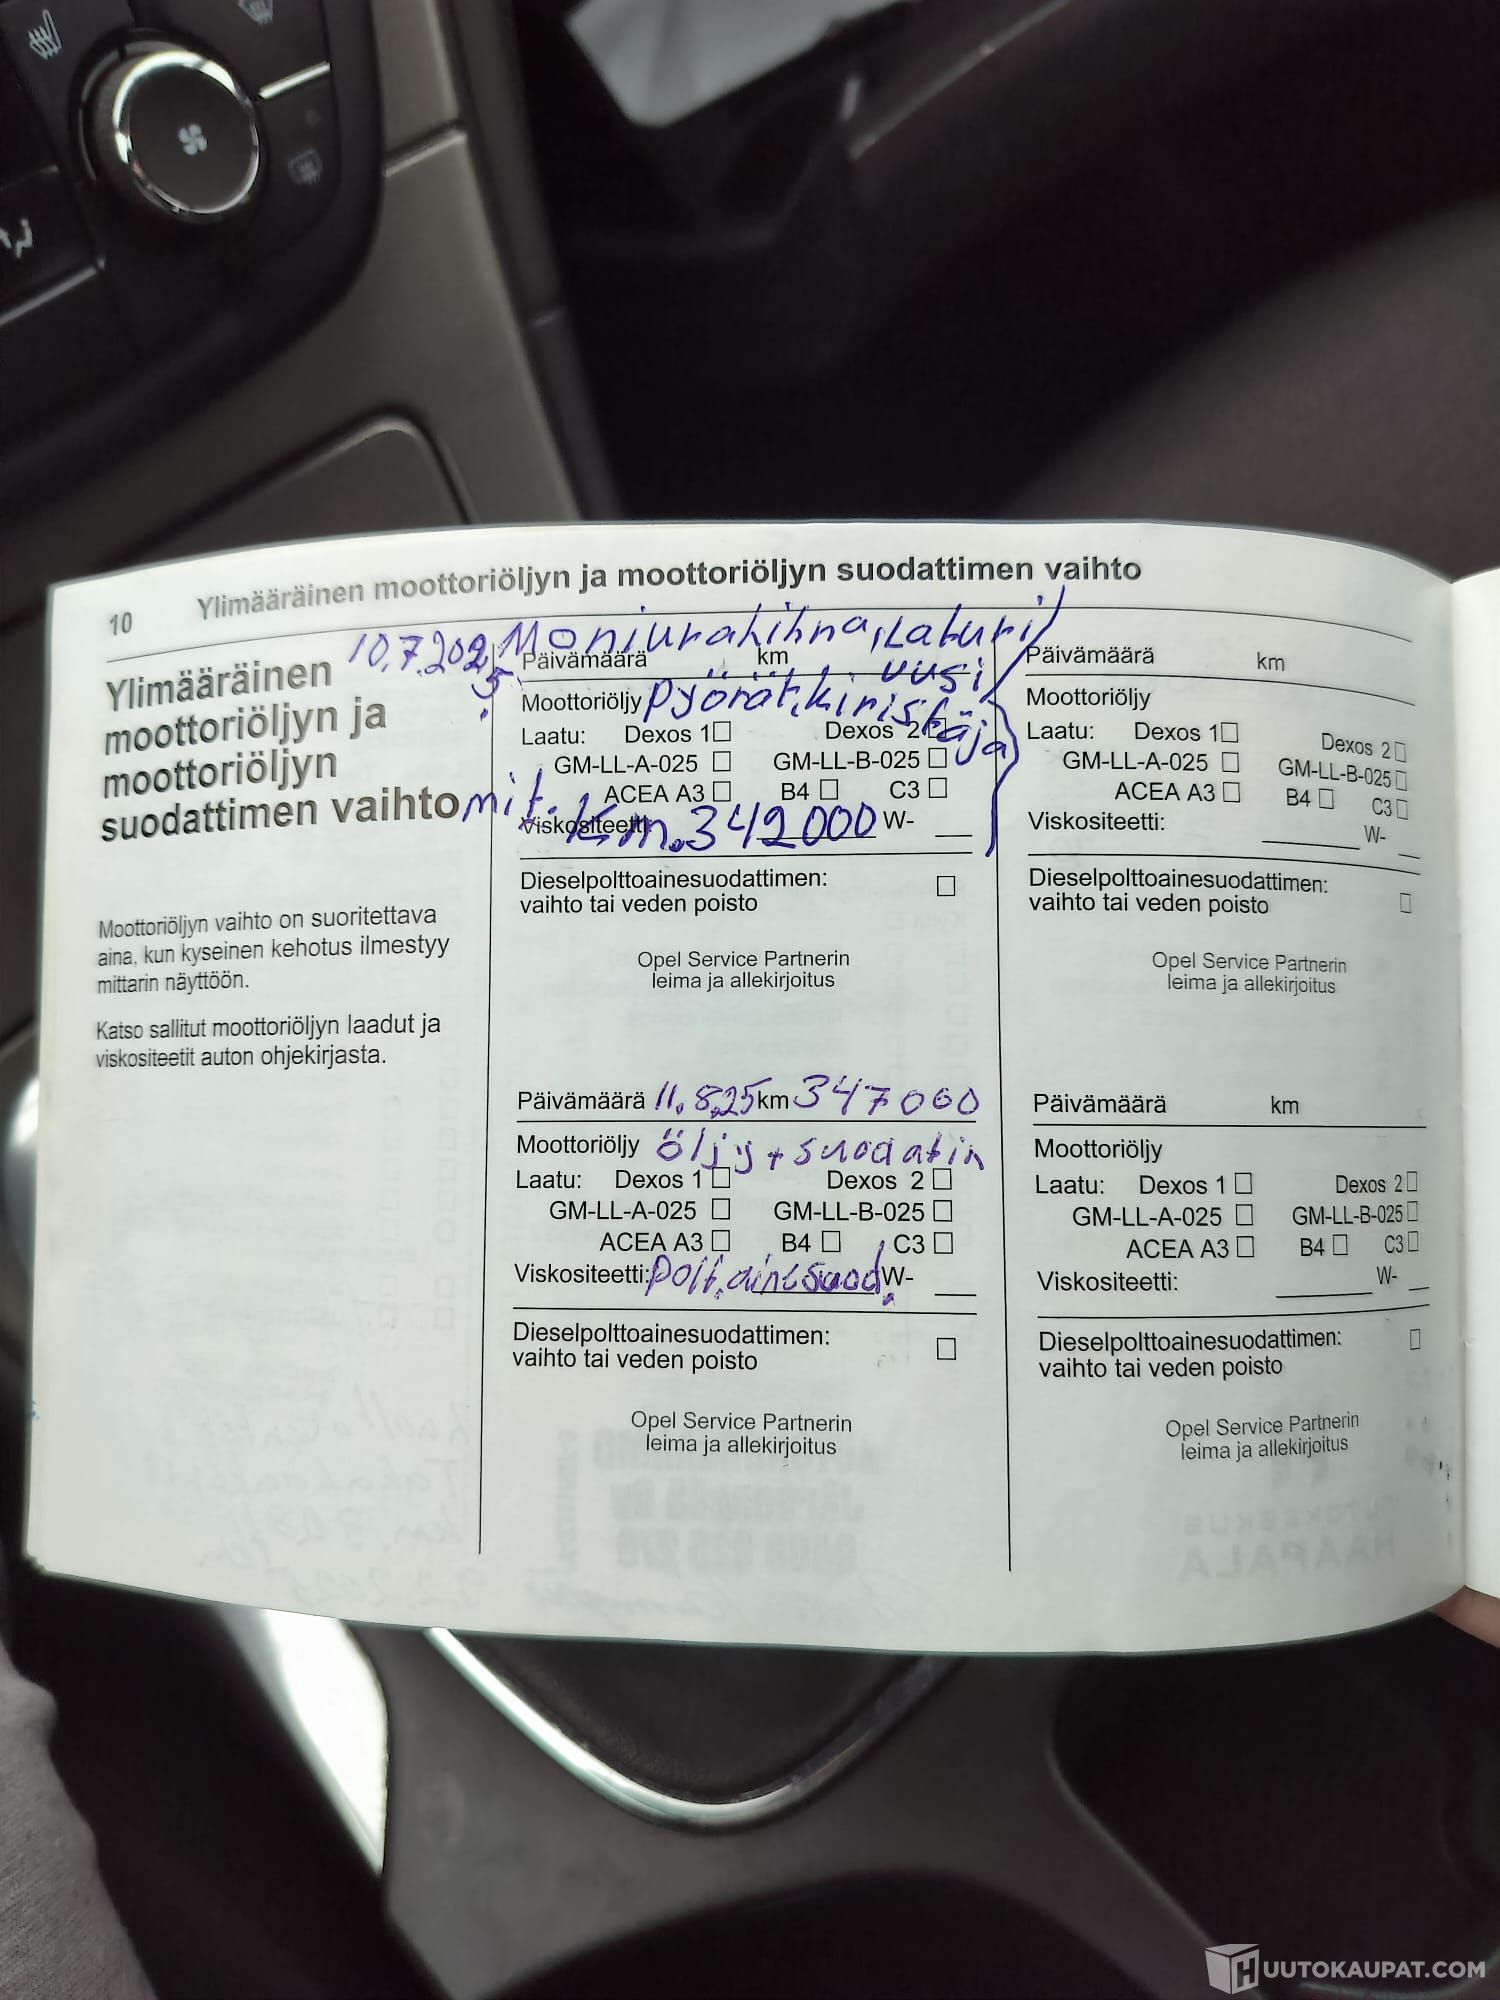 10 Ylimääräinen moottoriöljyn ja moottoriöljyn suodattimen vaihto
Ylimääräinen
moottoriöljyn ja
moottoriöljyn
suodattimen vaihto
Moottoriöljyn vaihto on suoritettava
aina, kun kyseinen kehotus ilmestyy
mittarin näyttöön.
Katso sallitut moottoriöljyn laadut ja
viskositeetit auton ohjekirjasta.
10.7.2025. Moniurahihna, Laturi
uusi
pyörät, kiristäjä
mit. km. 342000
Päivämäärä km
Moottoriöljy
Laatu: Dexos 1 Dexos 2
GM-LL-A-025 GM-LL-B-025
ACEA A3 B4 C3
Viskositeetti: W-
Dieselpolttoainesuodattimen:
vaihto tai veden poisto
Opel Service Partnerin
leima ja allekirjoitus
Päivämäärä 11.8.25 km 347000
Moottoriöljy öljy + suodatin
Laatu: Dexos 1 Dexos 2
GM-LL-A-025 GM-LL-B-025
ACEA A3 B4 C3
Viskositeetti: polt.ainesuod. W-
Dieselpolttoainesuodattimen:
vaihto tai veden poisto
Opel Service Partnerin
leima ja allekirjoitus
Päivämäärä km
Moottoriöljy
Laatu: Dexos 1 Dexos 2
GM-LL-A-025 GM-LL-B-025
ACEA A3 B4 C3
Viskositeetti: W-
Dieselpolttoainesuodattimen:
vaihto tai veden poisto
Opel Service Partnerin
leima ja allekirjoitus
Päivämäärä km
Moottoriöljy
Laatu: Dexos 1 Dexos 2
GM-LL-A-025 GM-LL-B-025
ACEA A3 B4 C3
Viskositeetti: W-
Dieselpolttoainesuodattimen:
vaihto tai veden poisto
Opel Service Partnerin
leima ja allekirjoitus
HUUTOKAUPAT.COM